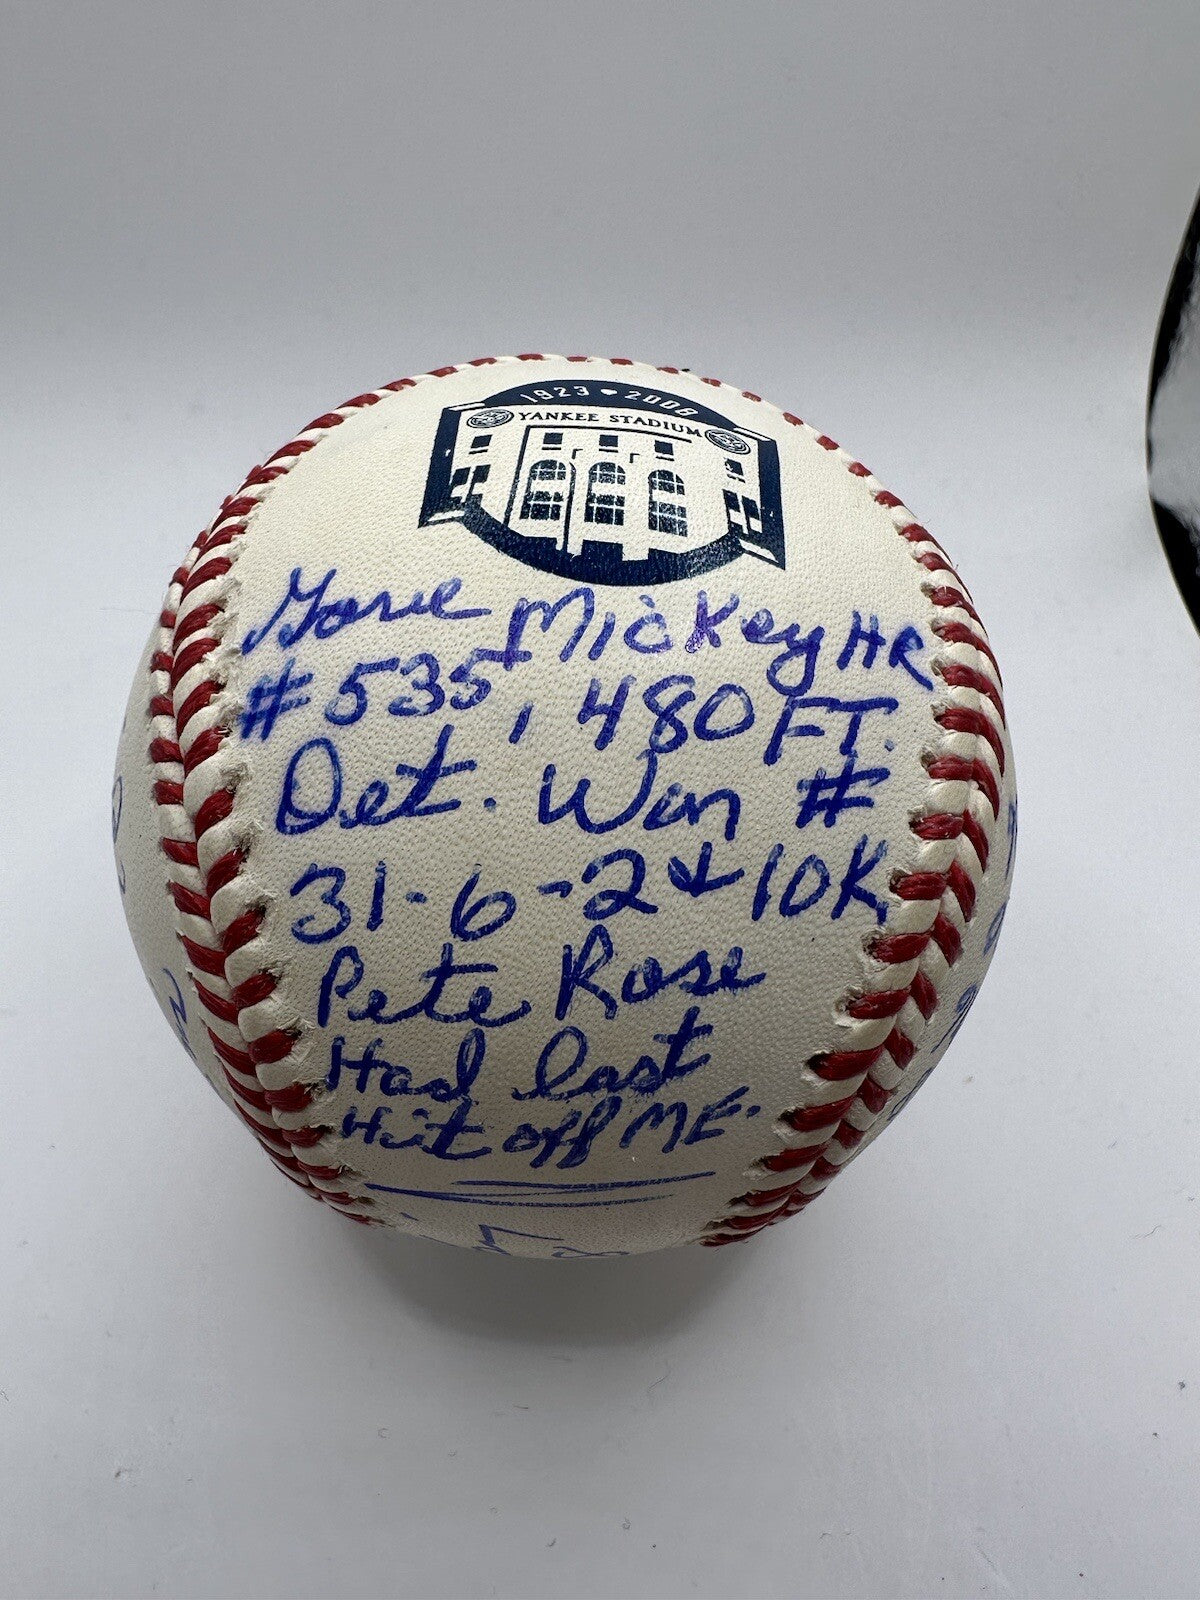 1923 2008
YANKEE STADIUM
Gave Mickey HR
#535, 480 FT.
Det. Won #
31-6-2 & 10K
Pete Rose
Had last
Hit off ME.